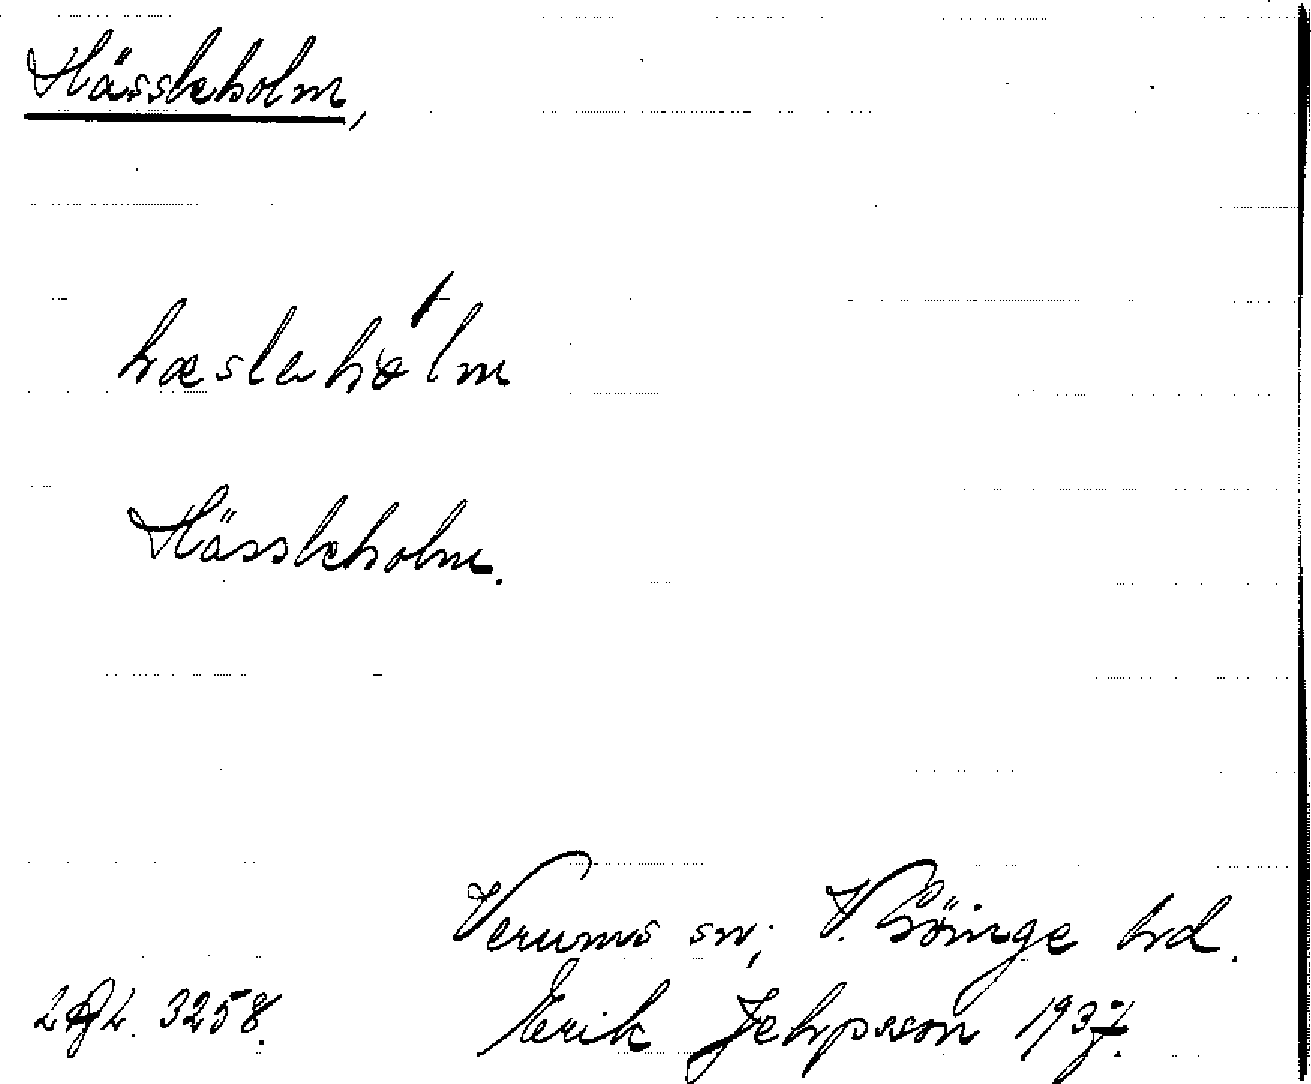 Hässleholm,
hæslahølm
Hässleholm.
Verums sn; V. Göinge hd.
Erik Jehpsson 1937.
3258.